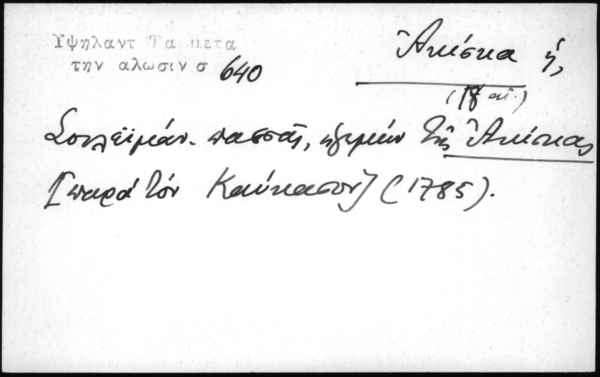 Υψηλαντ Τα μετα
την αλωσιν σ 640
Ἀκίσκα ἡ,
(18 αἰ.)
Σουλεϊμάν-πασσᾶς, ἡγεμών τῆς Ἀκίσκας
[παρά τόν Καύκασον] (1785).